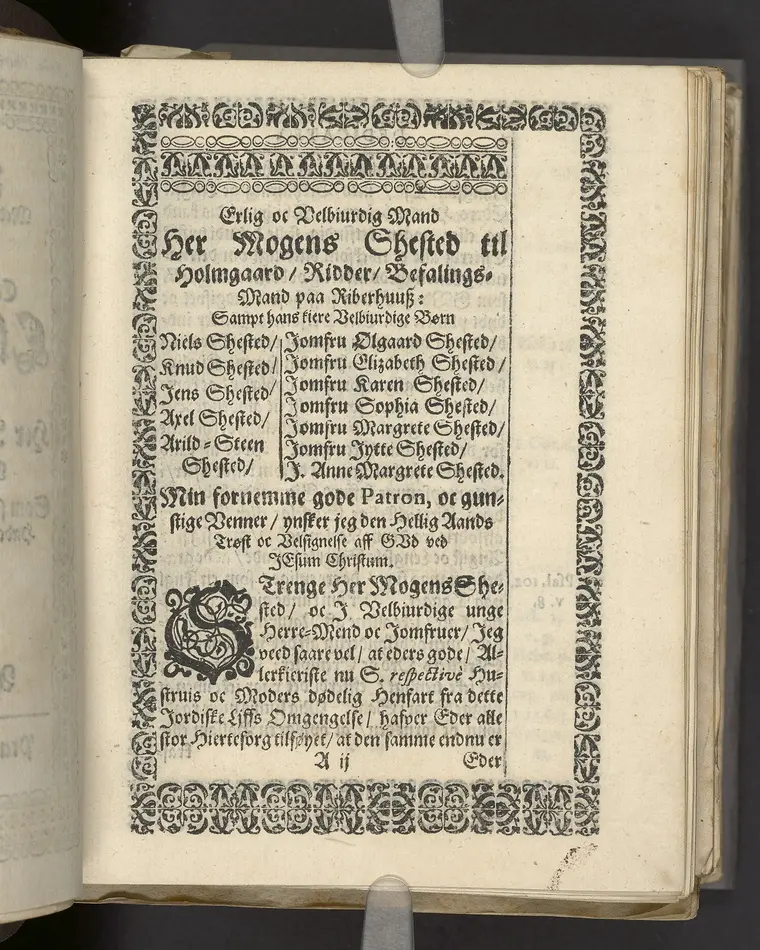 Erlig oc Velbiurdig Mand
Her Mogens Shested til
Holmgaard / Ridder / Befalings-
Mand paa Riberhuuß:
Sampt hans kiere Velbiurdige Børn
Niels Shested /
Knud Shested /
Jens Shested /
Axel Shested /
Arild-Steen
Shested /
Jomfru Olgaard Shested /
Jomfru Elizabeth Shested /
Jomfru Karen Shested /
Jomfru Sophia Shested /
Jomfru Margrete Shested /
Jomfru Jytte Shested /
J. Anne Margrete Shested.
Min fornemme gode Patron, oc gun-
stige Venner / ynsker jeg den Hellig Aands
Trøst oc Velsignelse aff GVd ved
JEsum Christum.
STrenge Her Mogens She-
sted / oc J Velbiurdige unge
Herre-Mend oc Jomfruer / Jeg
veed saare vel / at eders gode / Al-
lerkieriste nu S. respectivè Hu-
struis oc Moders dødelig Henfart fra dette
Jordiske Liffs Omgengelse / hafver Eder alle
stor Hiertesorg tilføyet / at den samme endnu er
A ij
Eder